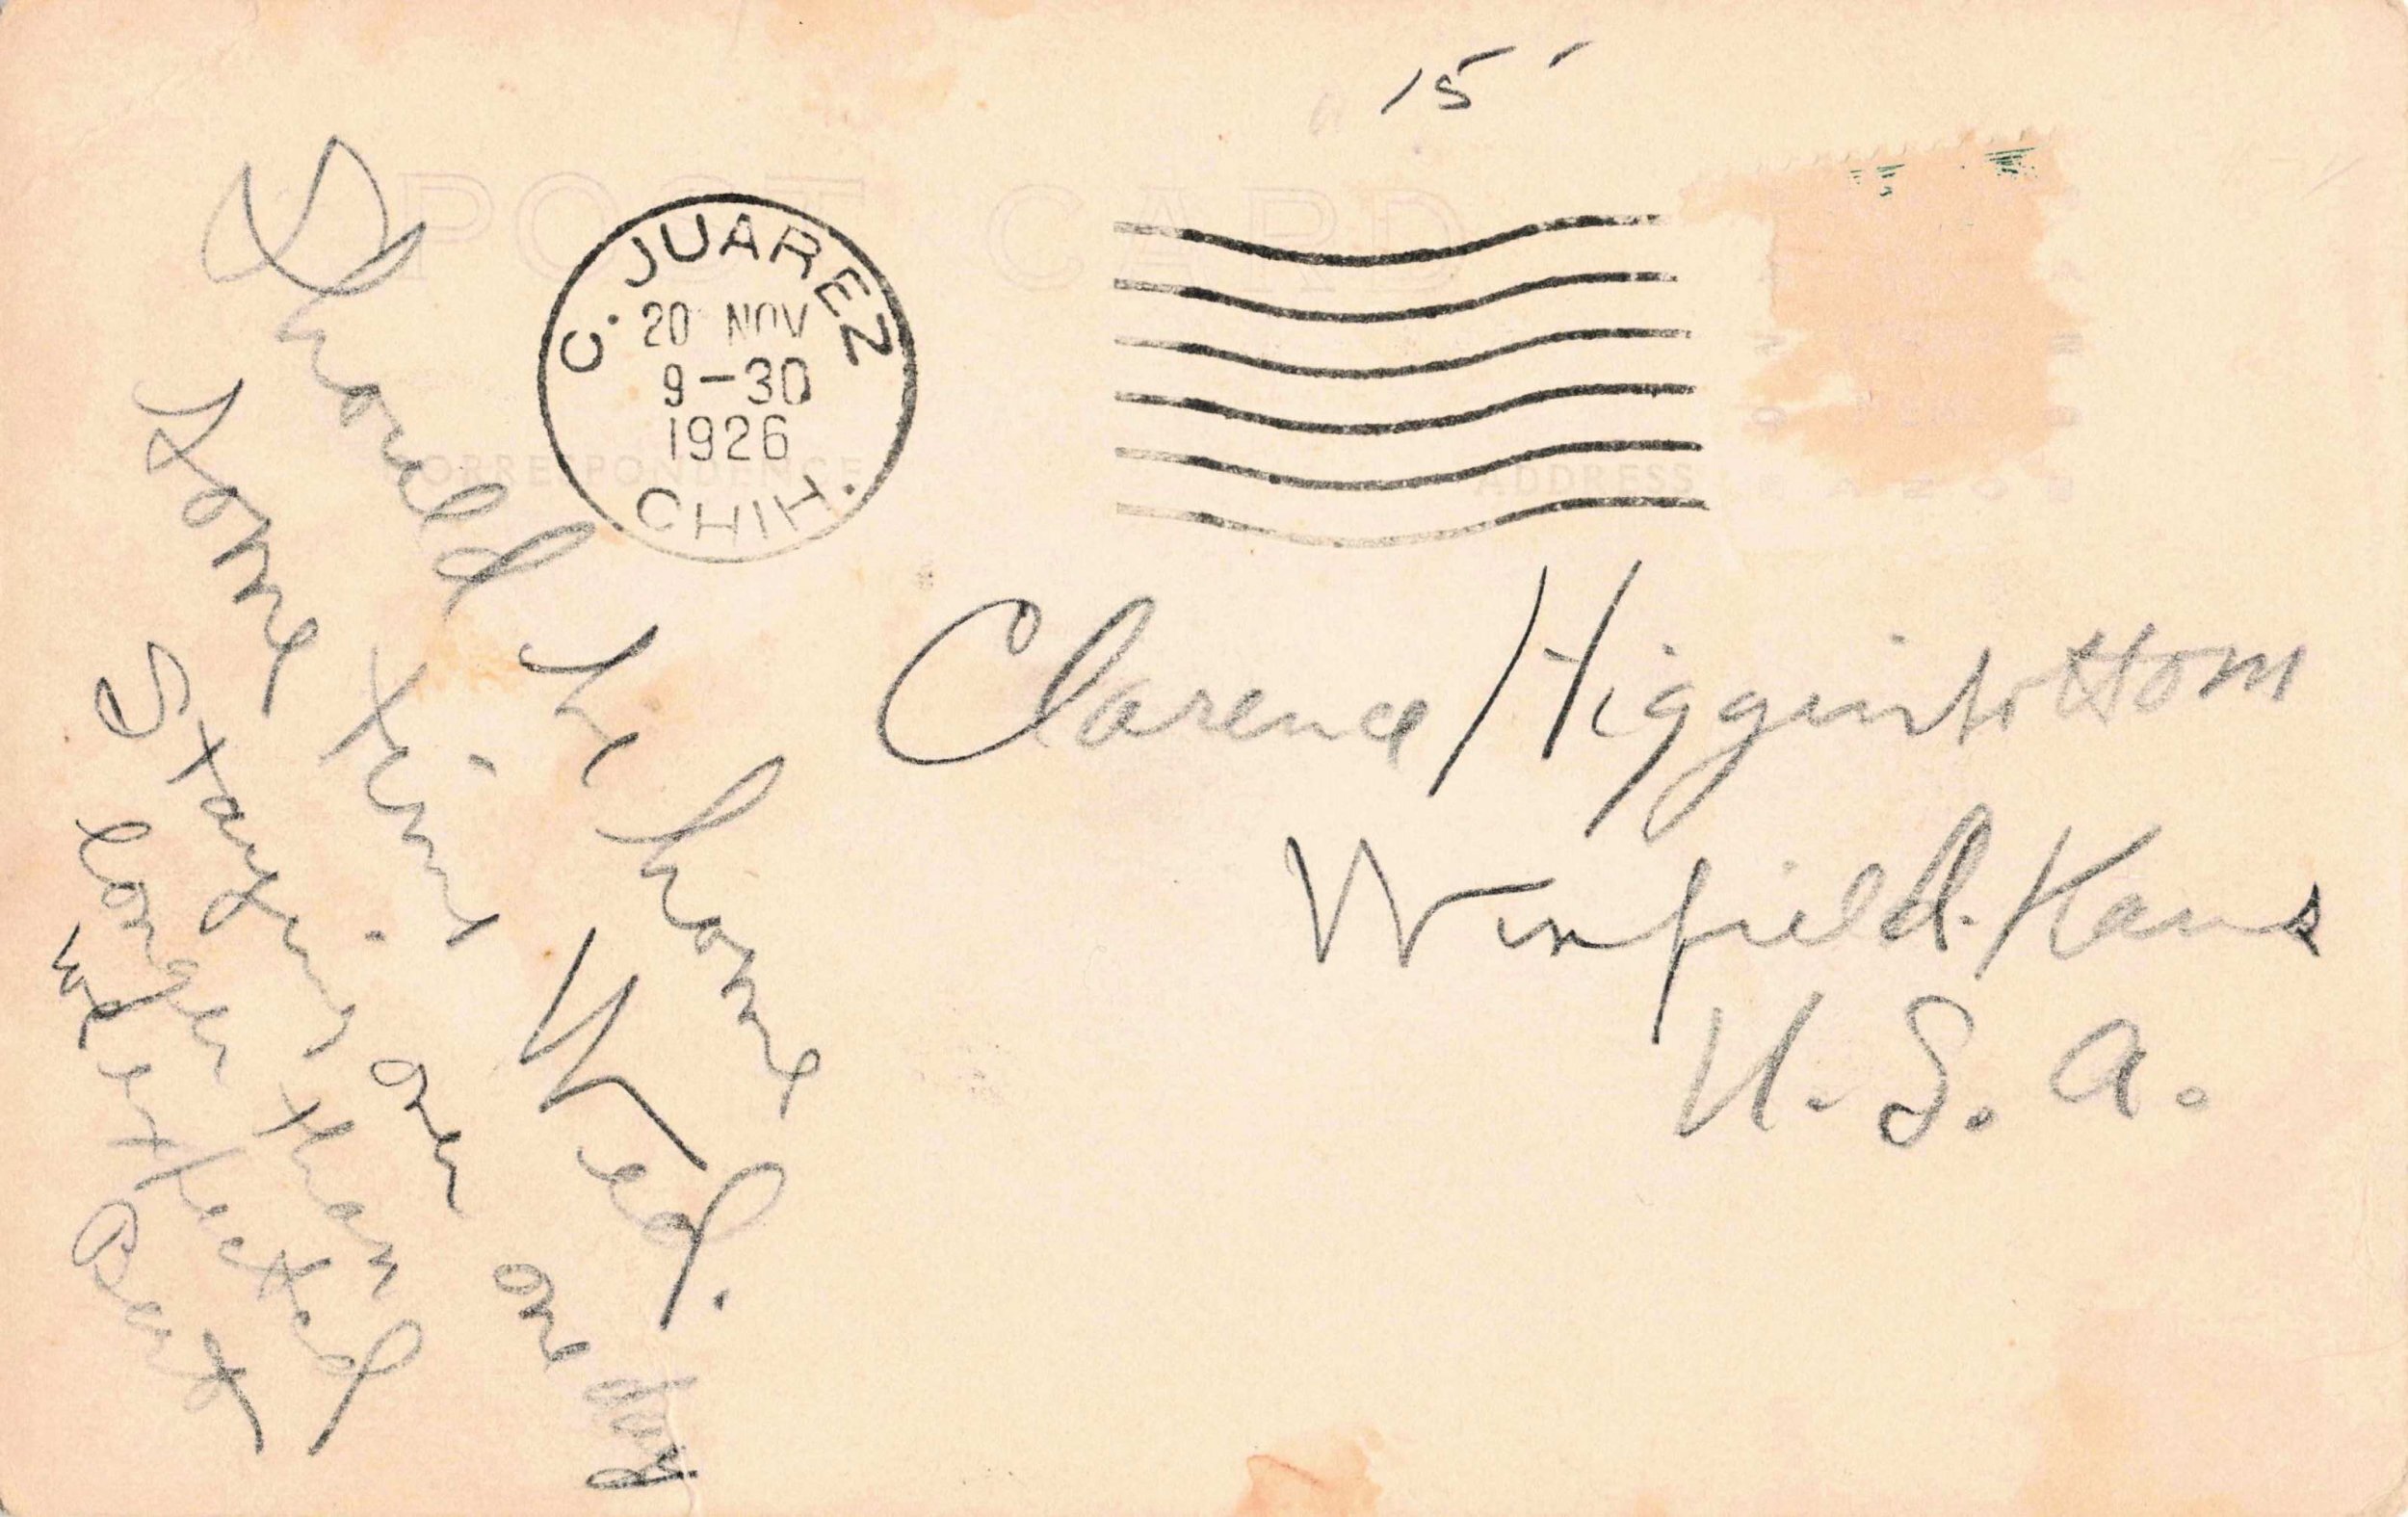 15
POST CARD
C. JUAREZ
20 NOV
9-30
1926
CHIH.
CORRESPONDENCE
ADDRESS
Should be home
Some time Wed.
Staying over one day
longer than
we expected
Bert
Clarence Higginbottom
Winfield. Kans
U. S. A.